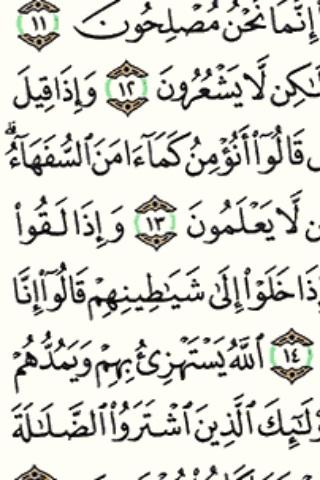 إِنَّمَا نَحْنُ مُصْلِحُونَ ١١
لَّا يَشْعُرُونَ ١٢ وَإِذَا قِيلَ
قَالُوٓا۟ أَنُؤْمِنُ كَمَآ ءَامَنَ ٱلسُّفَهَآءُ ۗ
لَّا يَعْلَمُونَ ١٣ وَإِذَا لَقُوا۟
خَلَوْا۟ إِلَىٰ شَيَٰطِينِهِمْ قَالُوٓا۟ إِنَّا
١٤ ٱللَّهُ يَسْتَهْزِئُ بِهِمْ وَيَمُدُّهُمْ
ٱلَّذِينَ ٱشْتَرَوُا۟ ٱلضَّلَٰلَةَ